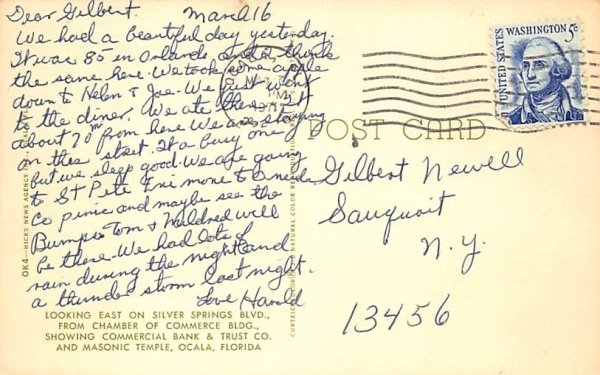 Dear Gilbert. March 16
We had a beautiful day yesterday.
It was 85 in Orlando and I think
the same here. We took some apple
down to Helen & Joe - We just went
to the diner. We ate there
about 70 mi from here We are staying
on this street. It a busy one
but we sleep good. We are going
to St Pete Fri more to Oneida
Co picnic and maybe see the
Bumps Tom & Mildred will
be there. We had lots of
rain during the night and
a thunder storm last night.
Love Harold
LOOKING EAST ON SILVER SPRINGS BLVD.,
FROM CHAMBER OF COMMERCE BLDG.,
SHOWING COMMERCIAL BANK & TRUST CO.
AND MASONIC TEMPLE, OCALA, FLORIDA
OK4—HICKS NEWS AGENCY
NATURAL COLOR
CURTEICH
POST CARD
UNITED STATES
WASHINGTON 5c
PM
Gilbert Newell
Sauquoit
N.Y.
13456